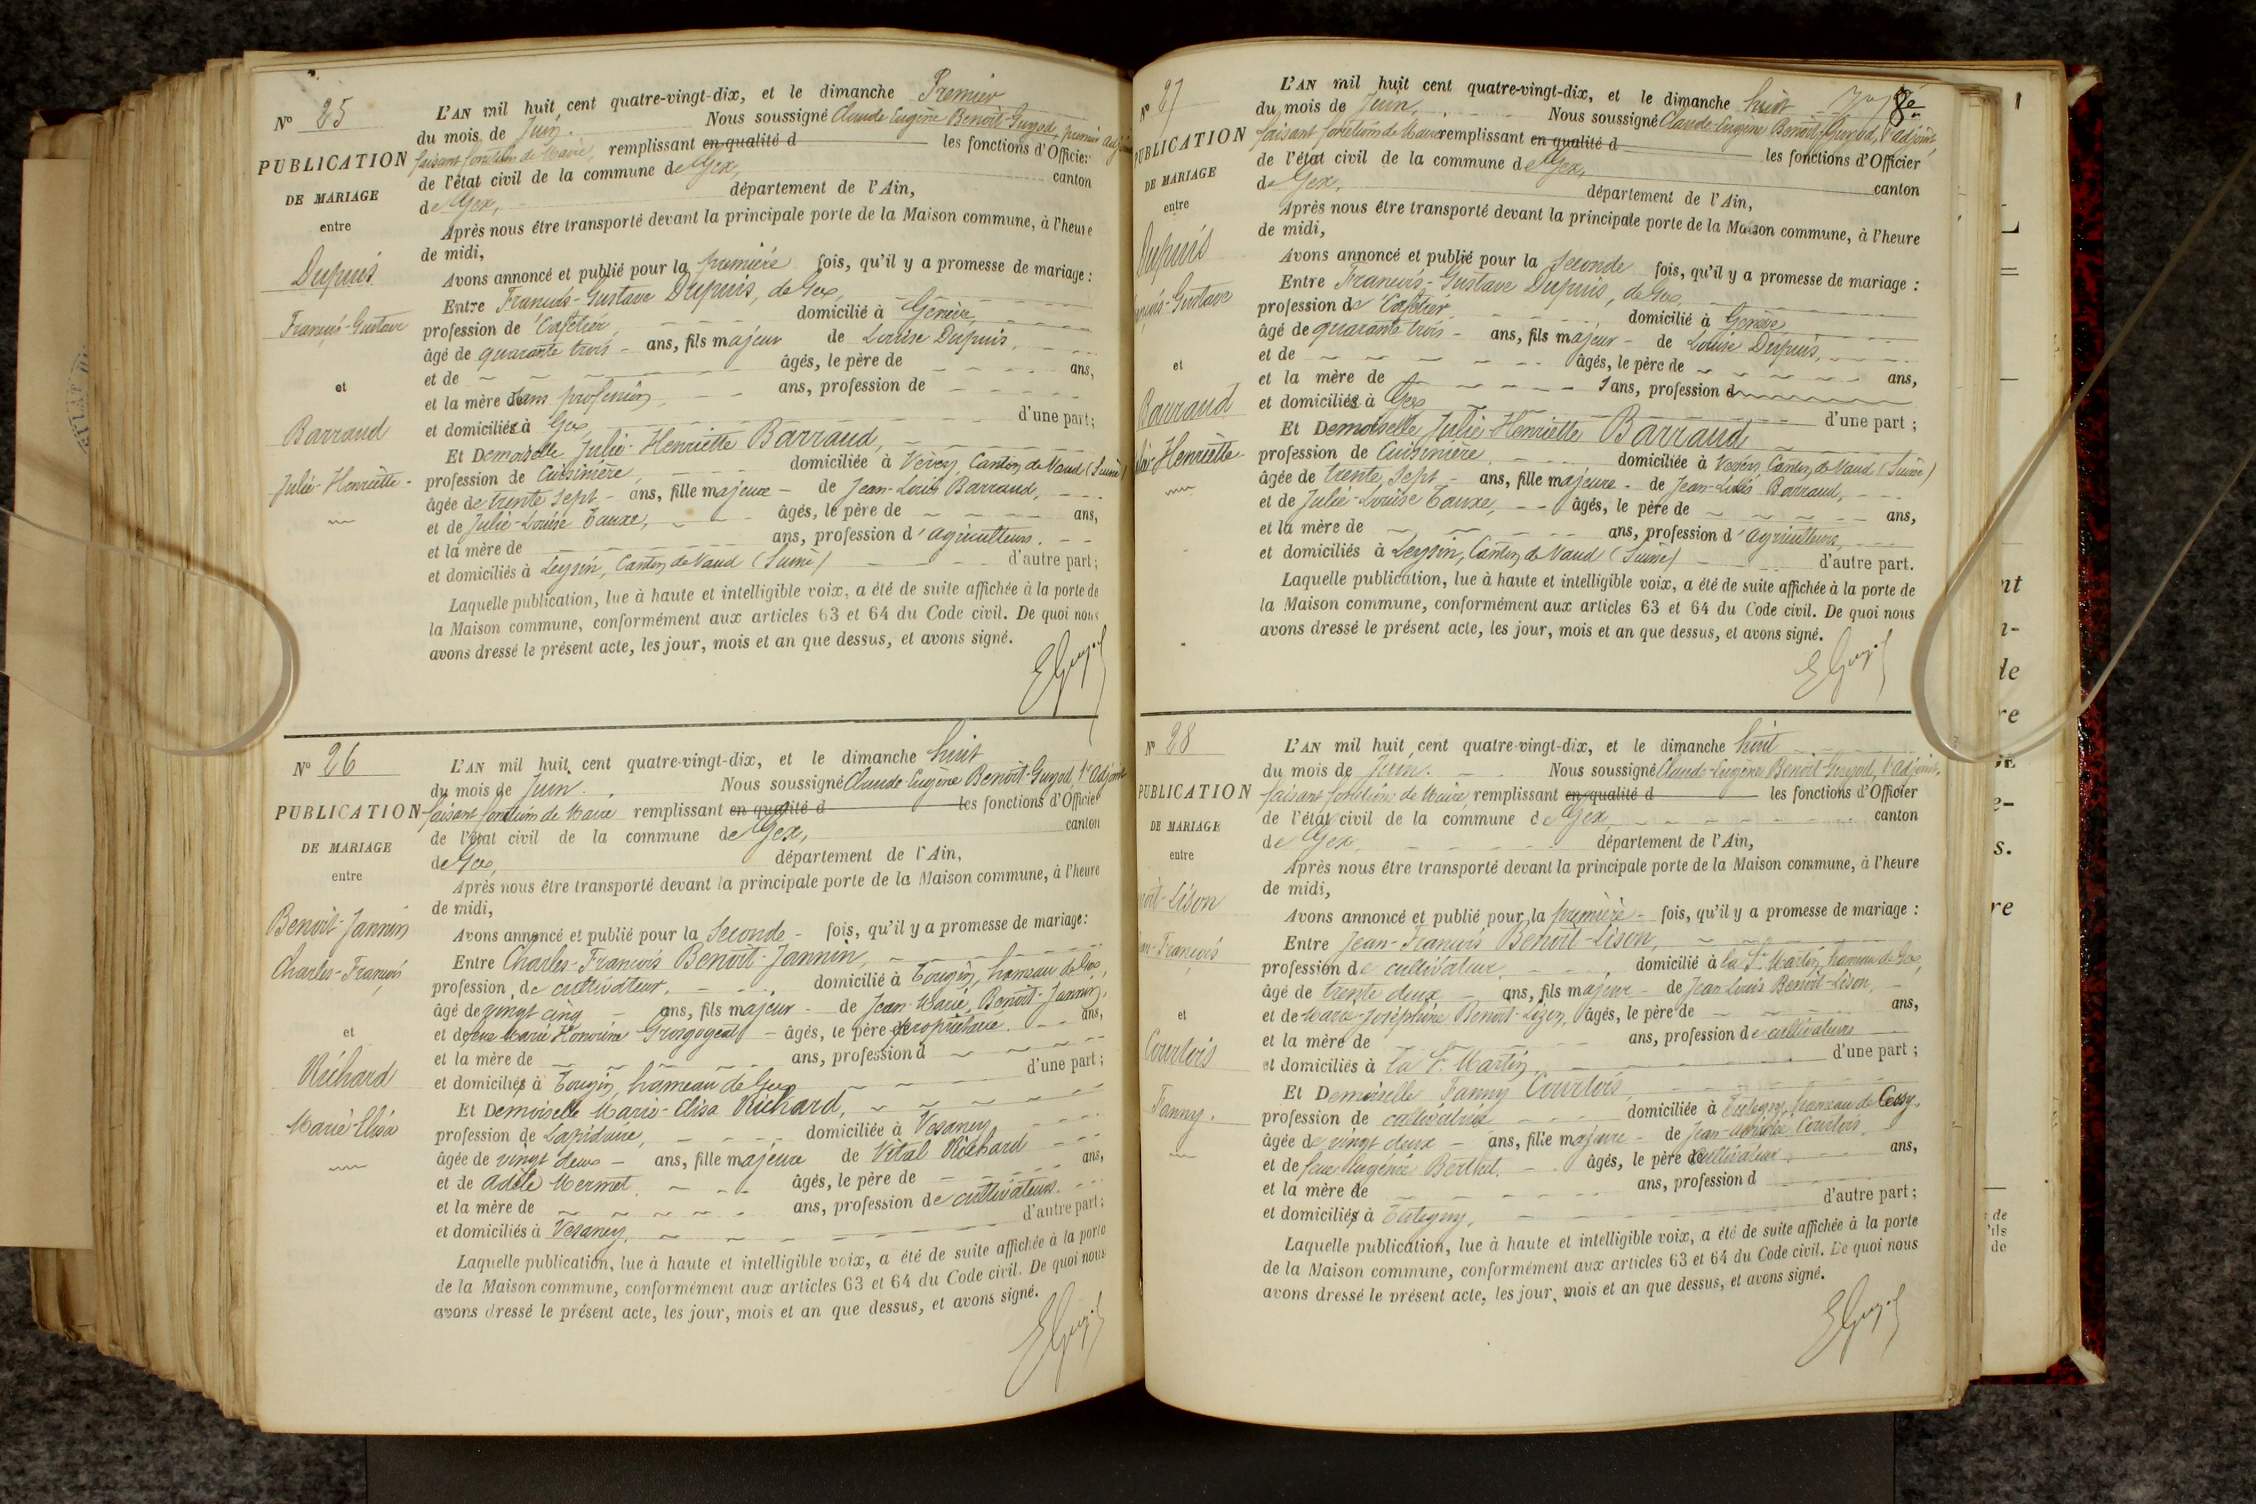 N° 25
PUBLICATION
DE MARIAGE
entre
Dupuis
François-Gustave
et
Barraud
Julie-Henriette
L'AN mil huit cent quatre-vingt-dix, et le dimanche Premier
du mois de Juin. Nous soussigné Claude Eugène Benoit-Guyod, premier adjoint
faisant fonction de Maire, remplissant en qualité d les fonctions d'Officier
de l'état civil de la commune de Gex, canton
de Gex, département de l'Ain,
Après nous être transporté devant la principale porte de la Maison commune, à l'heure
de midi,
Avons annoncé et publié pour la première fois, qu'il y a promesse de mariage :
Entre François-Gustave Dupuis, de Gex,
profession de Cafetier, domicilié à Genève,
âgé de quarante trois ans, fils majeur de Louise Dupuis,
et de âgés, le père de ans,
et la mère sans profession ans, profession de
et domiciliés à Gex, d'une part ;
Et Demoiselle Julie-Henriette Barraud,
profession de Cuisinière, domiciliée à Vevey, Canton de Vaud (Suisse)
âgée de trente sept ans, fille majeure de Jean-Louis Barraud,
et de Julie-Louise Tauxe, âgés, le père de ans,
et la mère de ans, profession d'agriculteurs.
et domiciliés à Leysin, Canton de Vaud (Suisse) d'autre part ;
Laquelle publication, lue à haute et intelligible voix, a été de suite affichée à la porte de
la Maison commune, conformément aux articles 63 et 64 du Code civil. De quoi nous
avons dressé le présent acte, les jour, mois et an que dessus, et avons signé.
EGuyod
N° 26
PUBLICATION
DE MARIAGE
entre
Benoit-Jannin
Charles-François
et
Richard
Marie-Elisa
L'AN mil huit cent quatre-vingt-dix, et le dimanche huit
du mois de Juin. Nous soussigné Claude-Eugène Benoit-Guyod, 1er adjoint
faisant fonction de Maire remplissant en qualité d les fonctions d'Officier
de l'état civil de la commune de Gex, canton
de Gex, département de l'Ain,
Après nous être transporté devant la principale porte de la Maison commune, à l'heure
de midi,
Avons annoncé et publié pour la seconde fois, qu'il y a promesse de mariage :
Entre Charles-François Benoit-Jannin,
profession de cultivateur, domicilié à Tougin, hameau de Gex,
âgé de vingt cinq ans, fils majeur de Jean-Marie Benoit-Jannin,
et de feue Marie Honorine âgés, le père de propriétaire. ans,
et la mère de ans, profession d
et domiciliés à Tougin, hameau de Gex d'une part ;
Et Demoiselle Marie-Elisa Richard,
profession de Lapidaire, domiciliée à Vesancy
âgée de vingt deux ans, fille majeure de Vital Richard
et de Adèle Mermet, âgés, le père de ans,
et la mère de ans, profession de cultivateurs.
et domiciliés à Vesancy, d'autre part ;
Laquelle publication, lue à haute et intelligible voix, a été de suite affichée à la porte
de la Maison commune, conformément aux articles 63 et 64 du Code civil. De quoi nous
avons dressé le présent acte, les jour, mois et an que dessus, et avons signé.
EGuyod
8e
N° 27
PUBLICATION
DE MARIAGE
entre
Dupuis
François-Gustave
et
Barraud
Julie-Henriette
L'AN mil huit cent quatre-vingt-dix, et le dimanche huit
du mois de Juin. Nous soussigné Claude-Eugène Benoit-Guyod, 1er adjoint,
faisant fonction de Maire remplissant en qualité d les fonctions d'Officier
de l'état civil de la commune de Gex, canton
de Gex, département de l'Ain,
Après nous être transporté devant la principale porte de la Maison commune, à l'heure
de midi,
Avons annoncé et publié pour la seconde fois, qu'il y a promesse de mariage :
Entre François-Gustave Dupuis, de Gex,
profession de Cafetier domicilié à Genève,
âgé de quarante trois ans, fils majeur de Louise Dupuis,
et de âgés, le père de ans,
et la mère de ans, profession d
et domiciliés à Gex d'une part ;
Et Demoiselle Julie-Henriette Barraud
profession de Cuisinière, domiciliée à Vevey, Canton de Vaud (Suisse)
âgée de trente sept ans, fille majeure de Jean-Louis Barraud,
et de Julie-Louise Tauxe, âgés, le père de ans,
et la mère de ans, profession d'agriculteurs,
et domiciliés à Leysin, Canton de Vaud (Suisse) d'autre part.
Laquelle publication, lue à haute et intelligible voix, a été de suite affichée à la porte de
la Maison commune, conformément aux articles 63 et 64 du Code civil. De quoi nous
avons dressé le présent acte, les jour, mois et an que dessus, et avons signé.
EGuyod
N° 28
PUBLICATION
DE MARIAGE
entre
Benoit-Lison
Jean-François
et
Courtois
Fanny.
L'AN mil huit cent quatre-vingt-dix, et le dimanche huit
du mois de Juin. Nous soussigné Claude-Eugène Benoit-Guyod, 1er adjoint,
faisant fonction de Maire, remplissant en qualité d les fonctions d'Officier
de l'état civil de la commune de Gex, canton
de Gex, département de l'Ain,
Après nous être transporté devant la principale porte de la Maison commune, à l'heure
de midi,
Avons annoncé et publié pour la première fois, qu'il y a promesse de mariage :
Entre Jean-François Benoit-Lison,
profession de cultivateur, domicilié à la St Martin, hameau de Gex,
âgé de trente deux ans, fils majeur de Jean-Louis Benoit-Lison,
et de Marie-Joséphine Benoit-Lizon, âgés, le père de ans,
et la mère de ans, profession de cultivateurs
et domiciliés à la St Martin d'une part ;
Et Demoiselle Fanny Courtois,
profession de cultivatrice domiciliée à Tutegny, hameau de Cessy,
âgée de vingt deux ans, fille majeure de Jean- Courtois
et de feue Eugénie Berthet, âgés, le père de cultivateur ans,
et la mère de ans, profession d
et domiciliés à Tutegny, d'autre part ;
Laquelle publication, lue à haute et intelligible voix, a été de suite affichée à la porte
de la Maison commune, conformément aux articles 63 et 64 du Code civil. De quoi nous
avons dressé le présent acte, les jour, mois et an que dessus, et avons signé.
EGuyod